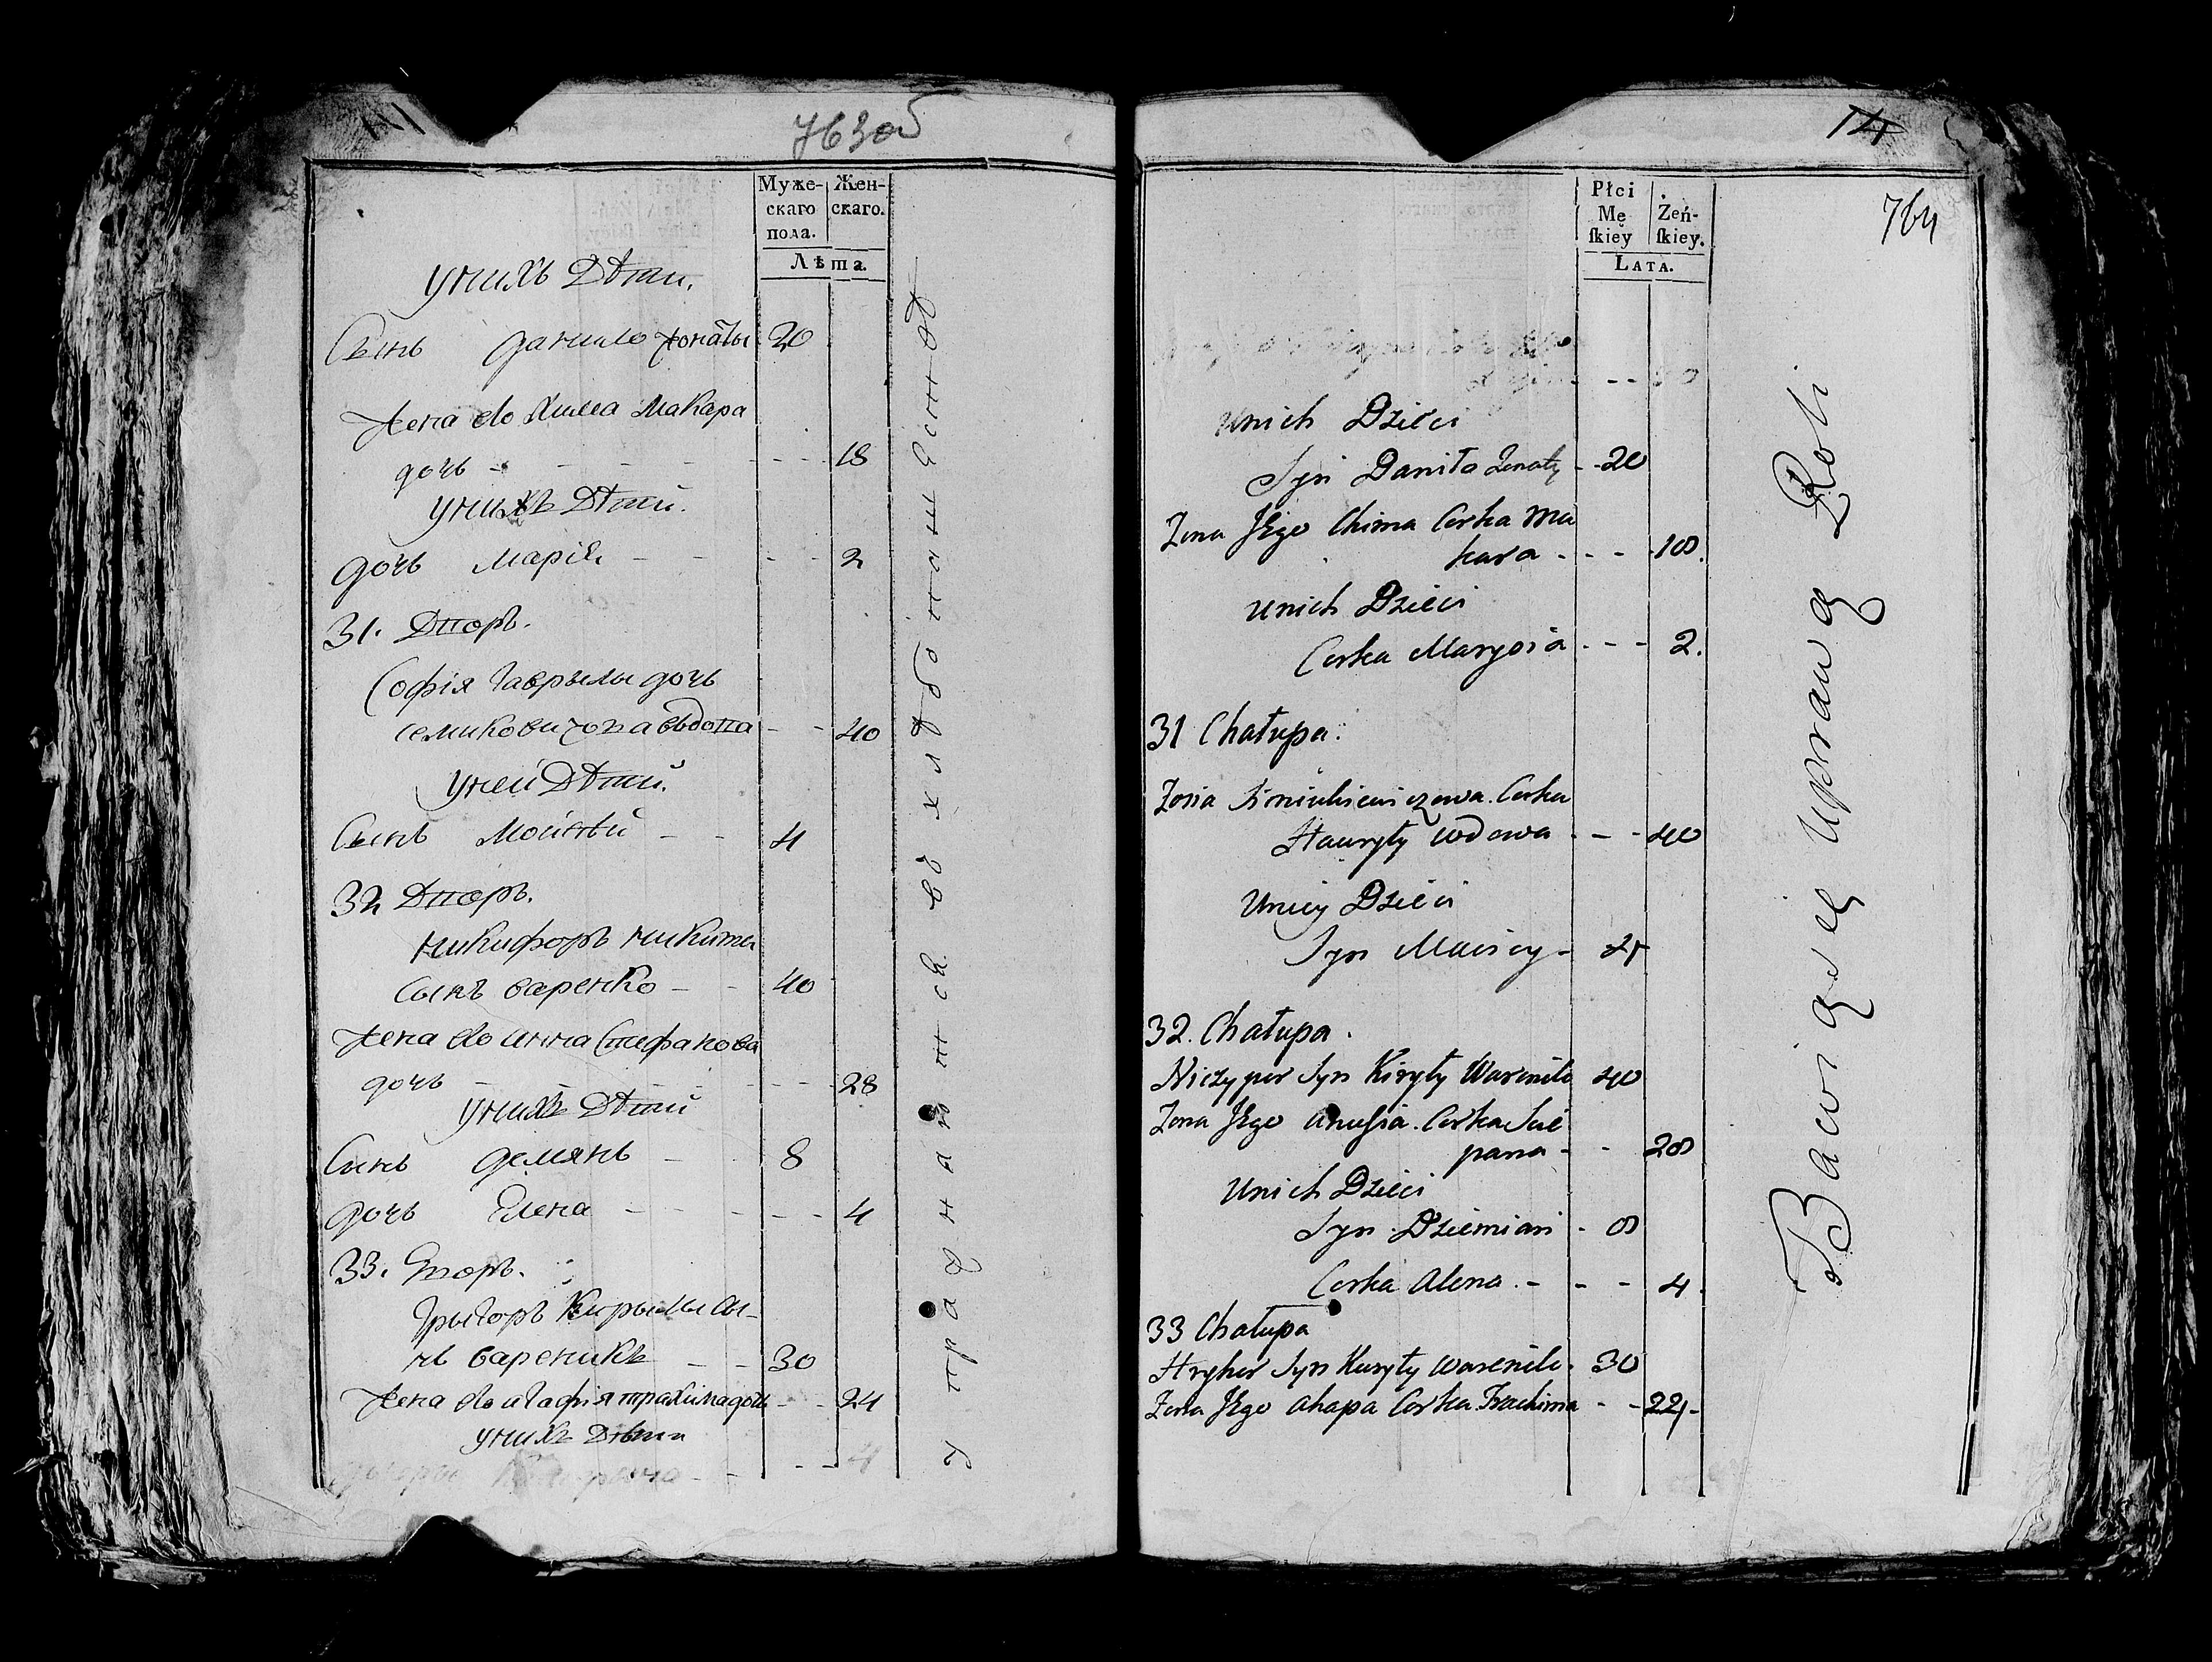 763об
Муже-
скаго
пола.
Жен-
скаго.
Лѣта.
у нихъ Дѣти.
Сынъ Данило жонаты 20
Жена его Хима Макара
дочь - - - - - 18
у нихъ Дѣтей.
дочь Марія - - - 2
31. Дворъ.
Софія Гаврылы дочь
вдова - - 40
у ней Дѣтей.
Сынъ Мойсѣй - - 4
32 Дворъ.
Никифоръ Никита
сынъ варенко - - 40
Жена его Анна Стефанова
дочь - - - - 28
у нихъ Дѣтей
Сынъ Демянъ - - 8
дочь Елена - - - - 4
33. Дворъ.
Грыгоръ Кирылы сы-
нъ вареникъ - - 30
Жена его Агафія трахима дочь - - 24
у нихъ Дѣти
4
упражняются въ хлѣбопашествѣ
14
764
Płci
Mę
ſkiey
Żeń-
ſkiey.
LATA.
Unich Dzieci
Syn Daniło Zonaty - - 20
Zona Jego Chima Corka Ma
kara - - - 18.
Unich Dzieci
Corka Marysia - - - 2.
31 Chałupa.
Zosia Corka
Hauryły wdowa - - - 40
Uniey Dzieci
Syn Maisiey - 4
32. Chałupa.
Niczypor Syn Kiryły Warenik 40
Zona Jego Anusia. Corka Scie
pana - - 28
Unich Dzieci
Syn Dziemian - 8
Corka Alena. - - - 4.
33 Chałupa
Hryhor Syn Kuryły Warenik. 30
Zona Jego Ahapa Corka Trachima - - 24
Bawią się Uprawą Roli